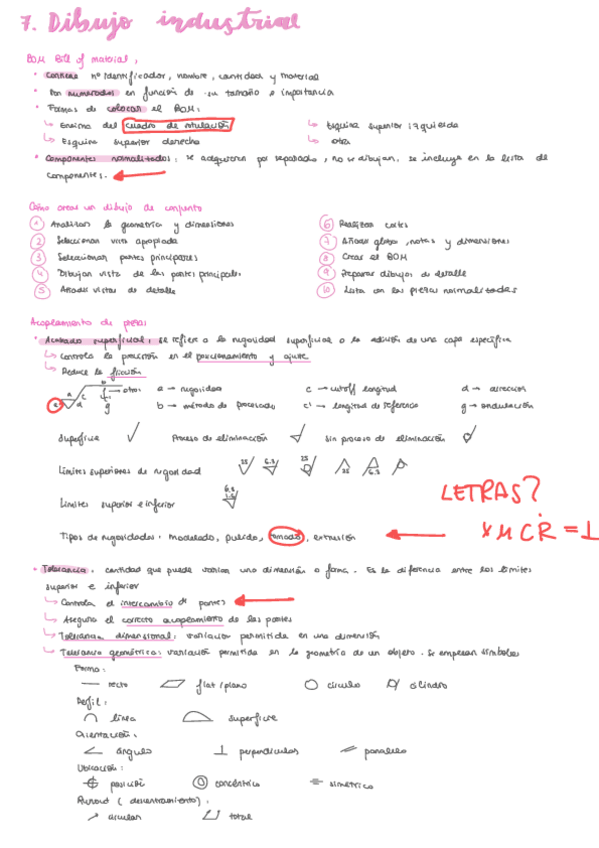 7. Dibujo industrial
BOM Bill of material:
• Contiene nº identificador, nombre, cantidad y material
• Por numerados en función de su tamaño o importancia
• Formas de colocar el BOM:
↳ Encima del cuadro de rotulación ↳ Esquina superior izquierda
↳ Esquina superior derecho ↳ otra
• Componentes normalizados: se adquieren por separado, no se dibujan, se incluye en la lista de
componentes.
Cómo crear un dibujo de conjunto
1 Analizar la geometría y dimensiones 6 Realizar cortes
2 Seleccionar vista apropiada 7 Añadir globos, notas y dimensiones
3 Seleccionar partes principales 8 Crear el BOM
4 Dibujar vista de las partes principales 9 Preparar dibujos de detalle
5 Añadir vistas de detalle 10 Lista con las piezas normalizadas
Acoplamiento de piezas
• Acabado superficial: se refiere a la rugosidad superficial o la adición de una capa específica
↳ Controla la precisión en el posicionamiento y ajuste
↳ Reduce la fricción
a → rugosidad c → cutoff longitud d → dirección
b → método de procesado c' → longitud de referencia g → ondulación
Superficie Proceso de eliminación sin proceso de eliminación
Límites superiores de rugosidad
Límites superior e inferior
LETRAS?
Tipos de rugosidades: modelado, pulido, torneado, extrusión X M C R = ⊥
• Tolerancia: cantidad que puede variar una dimensión o forma. Es la diferencia entre los límites
superior e inferior
↳ Controla el intercambio de partes
↳ Asegura el correcto acoplamiento de las partes
↳ Tolerancia dimensional: variación permitida en una dimensión
↳ Tolerancia geométrica: variación permitida en la geometría de un objeto. Se emplean símbolos
Forma:
recto flat/plano círculo cilindro
Perfil:
línea superficie
Orientación:
ángulo perpendiculas paralelo
Ubicación:
posición concéntrico simétrico
Runout (descentramiento):
circular total